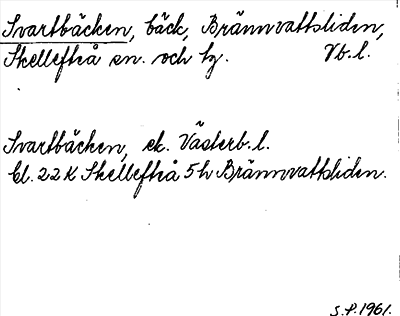 Svartbäcken, bäck, Brännvattsliden,
Skellefteå sn. och tg. Vb.l.
Svartbäcken, ek. Västerb.l.
Bl. 22 K Skellefteå 5 h Brännvattsliden.
S.P. 1961.